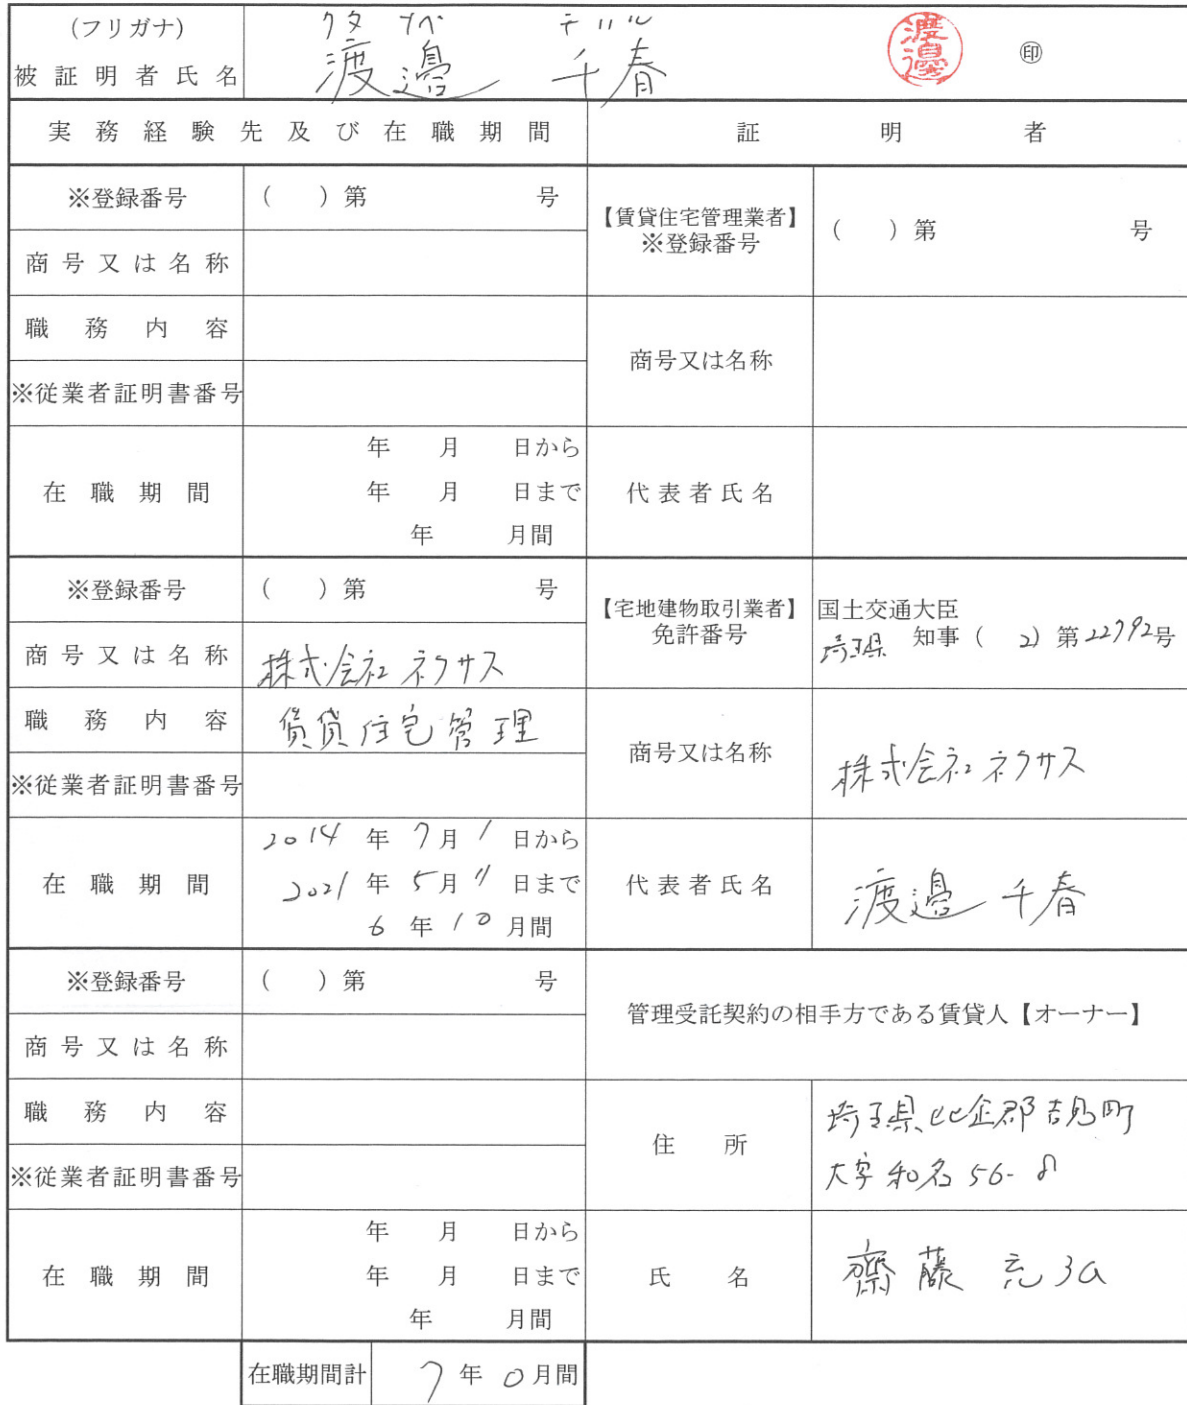 (フリガナ) ワタナベ チハル
被証明者氏名 渡邉 千春 渡邉 ㊞
実務経験先及び在職期間 証明者
※登録番号 ( )第 号
商号又は名称
職務内容
※従業者証明書番号
在職期間
年 月 日から
年 月 日まで
年 月間
【賃貸住宅管理業者】
※登録番号
( )第 号
商号又は名称
代表者氏名
※登録番号 ( )第 号
商号又は名称 株式会社ネクサス
職務内容 賃貸住宅管理
※従業者証明書番号
在職期間
2014 年 7月 1 日から
2021 年 5月 11 日まで
6 年 10 月間
【宅地建物取引業者】
免許番号
国土交通大臣
埼玉県 知事 ( 2) 第22792号
商号又は名称 株式会社ネクサス
代表者氏名 渡邉 千春
※登録番号 ( )第 号
商号又は名称
職務内容
※従業者証明書番号
在職期間
年 月 日から
年 月 日まで
年 月間
管理受託契約の相手方である賃貸人【オーナー】
住所
埼玉県比企郡吉見町
大字和名56-8
氏名 齋藤
在職期間計 7 年 0月間